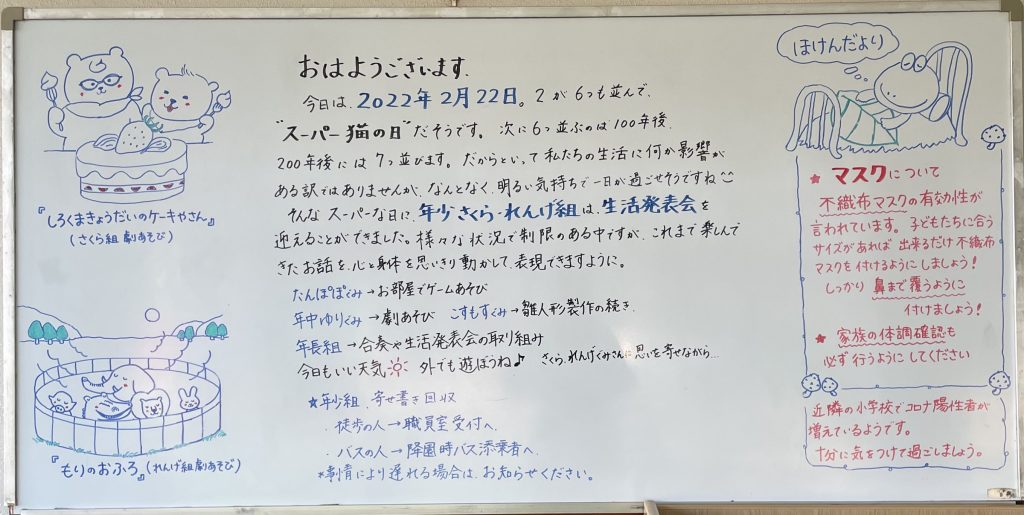 『しろくまきょうだいのケーキやさん』
(さくら組 劇あそび)
『もりのおふろ』(れんげ組劇あそび)
おはようございます。
今日は、2022年2月22日。2が6つも並んで、
"スーパー猫の日"だそうです。次に6つ並ぶのは100年後、
200年後には7つ並びます。だからといって私たちの生活に何か影響が
ある訳ではありませんが、なんとなく、明るい気持ちで一日が過ごせそうですね
そんなスーパーな日に、年少さくら・れんげ組は、生活発表会を
迎えることができました。様々な状況で制限のある中ですが、これまで楽しんで
きたお話を、心と身体を思いきり動かして、表現できますように。
たんぽぽぐみ→お部屋でゲームあそび
年中ゆりぐみ→劇あそび こすもすぐみ→雛人形製作の続き。
年長組→合奏や生活発表会の取り組み
今日もいい天気 外でも遊ぼうね♪ さくら、れんげぐみさんに思いを寄せながら…
★年少組、寄せ書き回収
・徒歩の人→職員室受付へ
・バスの人→降園時バス添乗者へ。
*事情により遅れる場合は、お知らせください。
ほけんだより
★マスクについて
不織布マスクの有効性が
言われています。子どもたちに合う
サイズがあれば出来るだけ不織布
マスクを付けるようにしましょう!
しっかり鼻まで覆うように
付けましょう!
★家族の体調確認も
必ず行うようにしてください
近隣の小学校でコロナ陽性者が
増えているようです。
十分に気をつけて過ごしましょう。